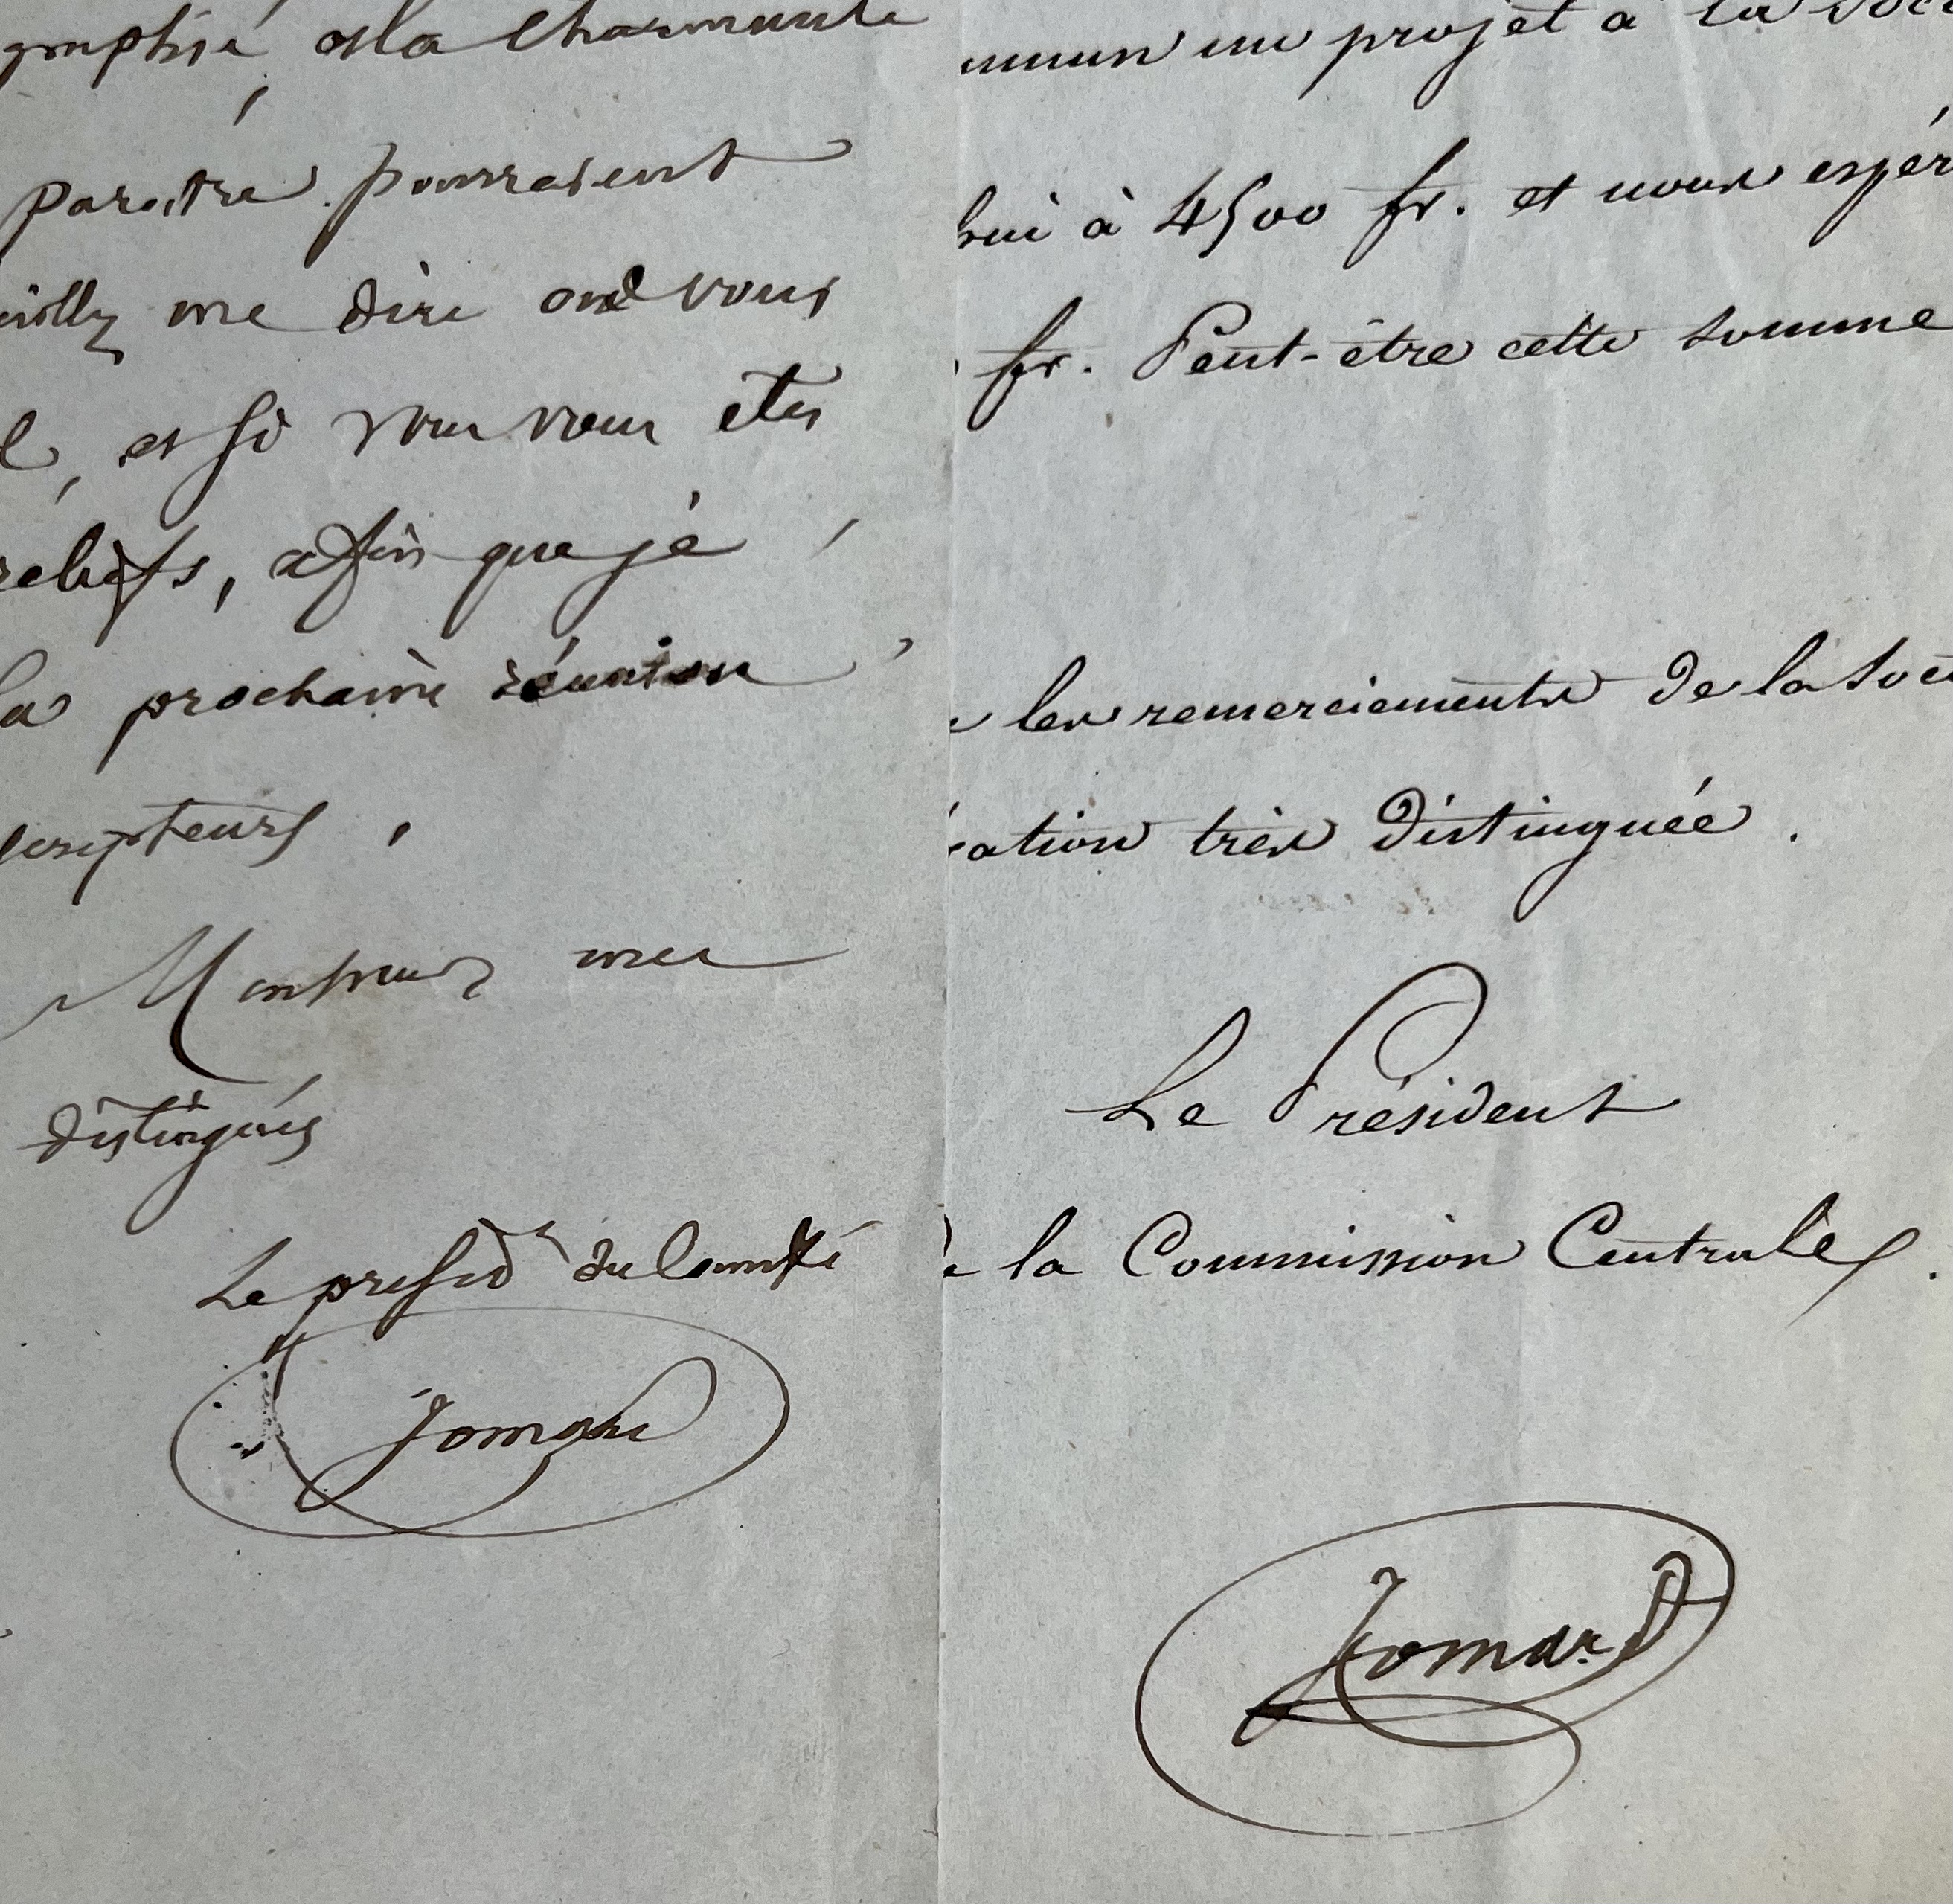 et la Charmante
paraître pourraient
me dire où vous
et si vous vous êtes
reliefs, afin que je
la prochaine réunion
scripteurs,
Monsieur mes
distingués
Le présidt du Comité
Jomard
un projet à la Soci
hui à 4500 fr. et nous espér
fr. Peut-être cette somme
les remerciements de la Soci
ation très distinguée.
Le Président
de la Commission Centrale.
Jomard